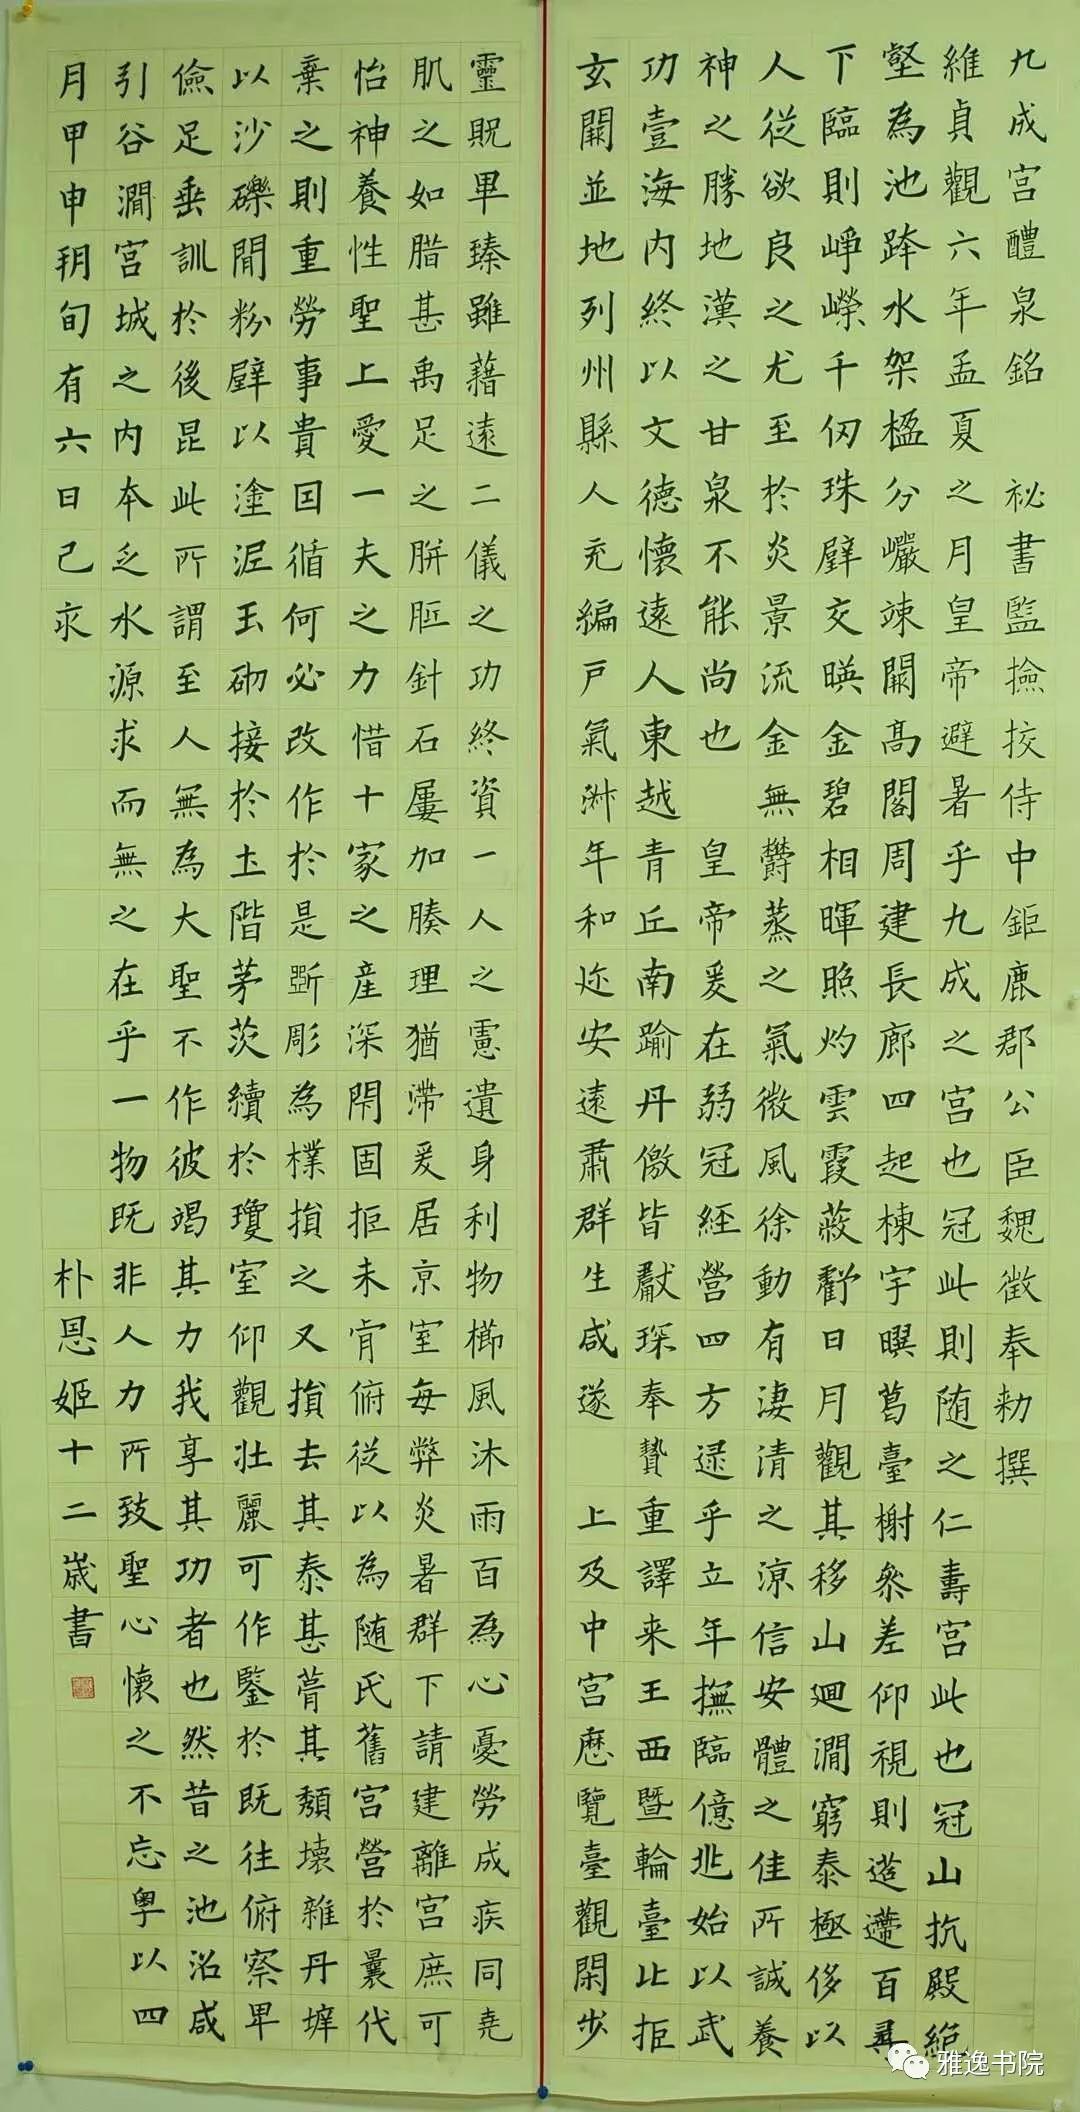 九成宮醴泉銘 祕書監撿挍侍中鉅鹿郡公臣魏徵奉勑撰
維貞觀六年孟夏之月皇帝避暑乎九成之宮也冠此則随之仁壽宮此也冠山抗殿絕
壑為池跨水架楹分巖竦闕高閣周建長廊四起棟宇㬵葛臺榭叅差仰視則迢遰百尋
下臨則崢嶸千仞珠璧交暎金碧相暉照灼雲霞蔽虧日月觀其移山迴澗窮泰極侈以
人從欲良之尤至於炎景流金無鬱蒸之氣微風徐動有淒清之涼信安體之佳所誠養
神之勝地漢之甘泉不能尚也 皇帝爰在弱冠經營四方逮乎立年撫臨億兆始以武
功壹海内終以文德懷遠人東越青丘南踰丹儌皆獻琛奉贄重譯来王西暨輪臺北拒
玄闕並地列州縣人充編戸氣淑年和迩安遠肅群生咸遂 上及中宮歷覽臺觀閑步
靈貺畢臻雖藉遠二儀之功終資一人之慮遺身利物櫛風沐雨百為心憂勞成疾同堯
肌之如腊甚禹足之胼胝針石屢加腠理猶滯爰居京室每弊炎暑群下請建離宮庶可
怡神養性聖上愛一夫之力惜十家之産深閇固拒未肯俯從以為随氏舊宮營於曩代
棄之則重勞事貴因循何必改作於是斲彫為樸損之又損去其泰甚葺其頹壞雜丹墀
以沙礫間粉壁以塗泥玉砌接於土階茅茨續於瓊室仰觀壮麗可作鑒於既往俯察卑
儉足垂訓於後昆此所謂至人無為大聖不作彼竭其力我享其功者也然昔之池沼咸
引谷澗宮城之内本乏水源求而無之在乎一物既非人力所致聖心懷之不忘粤以四
月甲申朔旬有六日己亥 朴恩姬十二歲書
雅逸书院